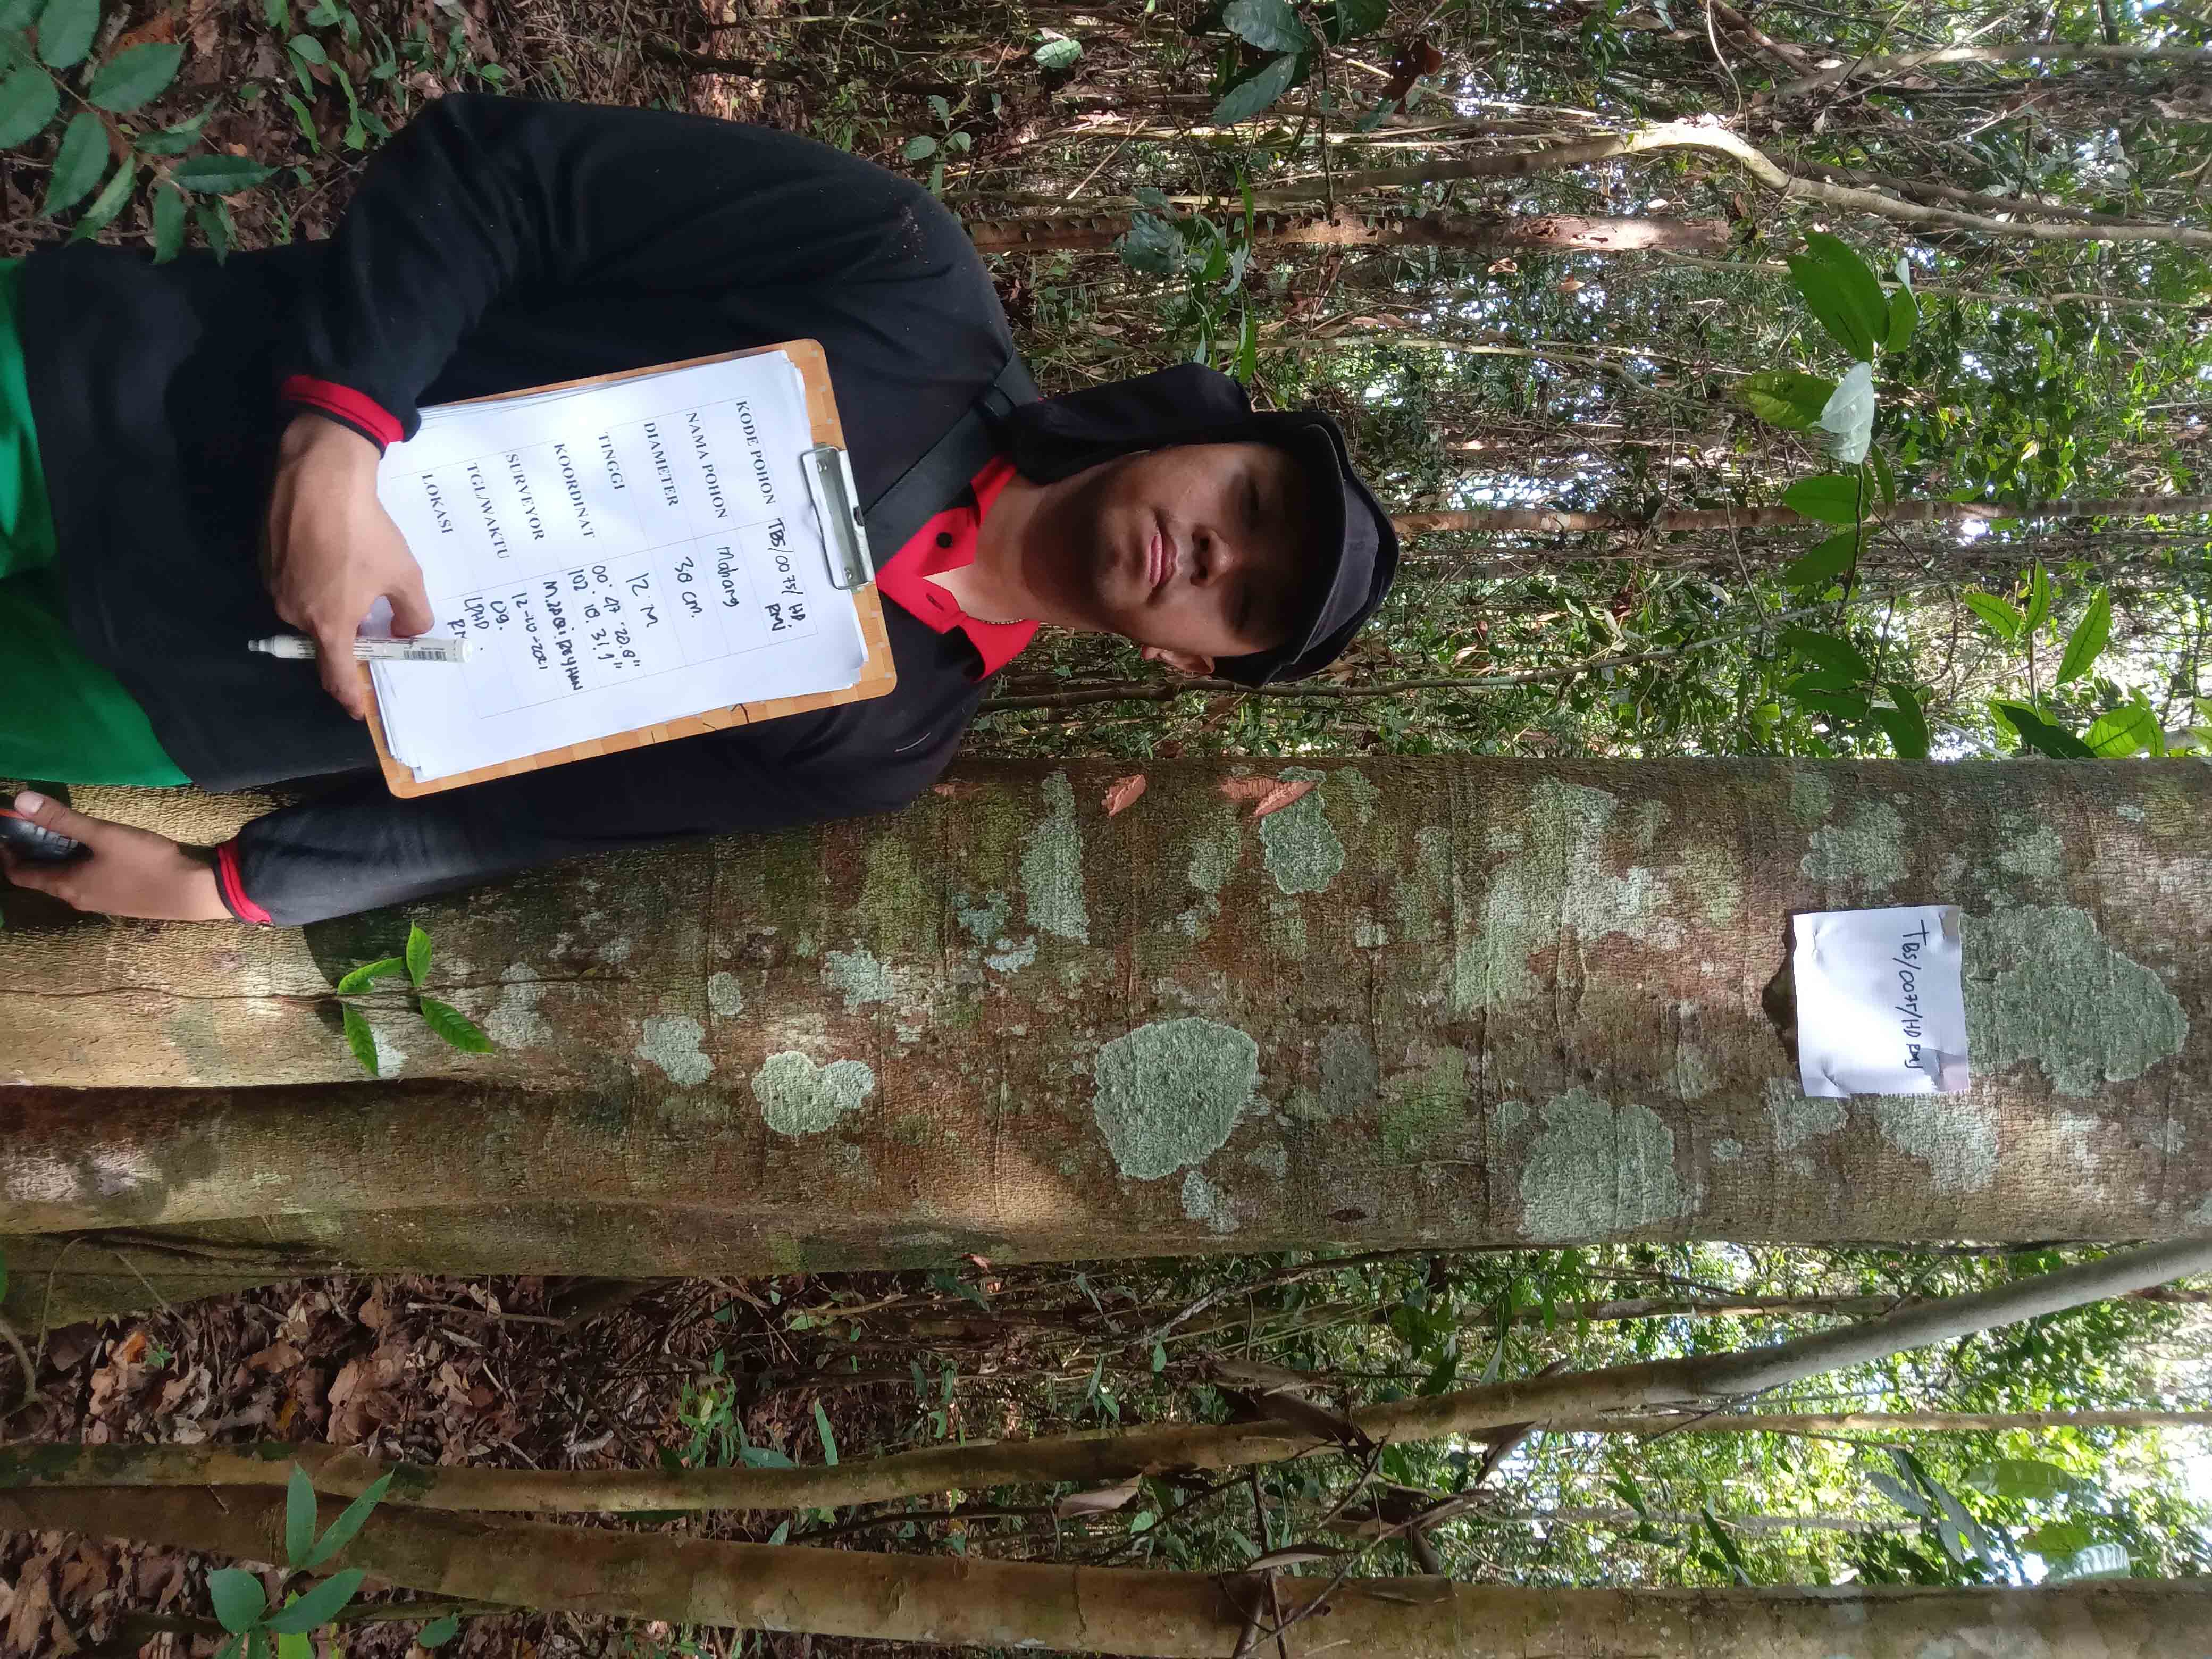 TBS/0075/HD RMV
KODE POHON TBS/0075/ HD.
RMV
NAMA POHON Mahang
DIAMETER 30 cm.
TINGGI 12 M
KOORDINAT 00° 47' 20.8"
102° 18. 31.9"
SURVEYOR M. ZAQI. REYHAN
TGL/WAKTU 12-10-2021
09.
LOKASI LPHD